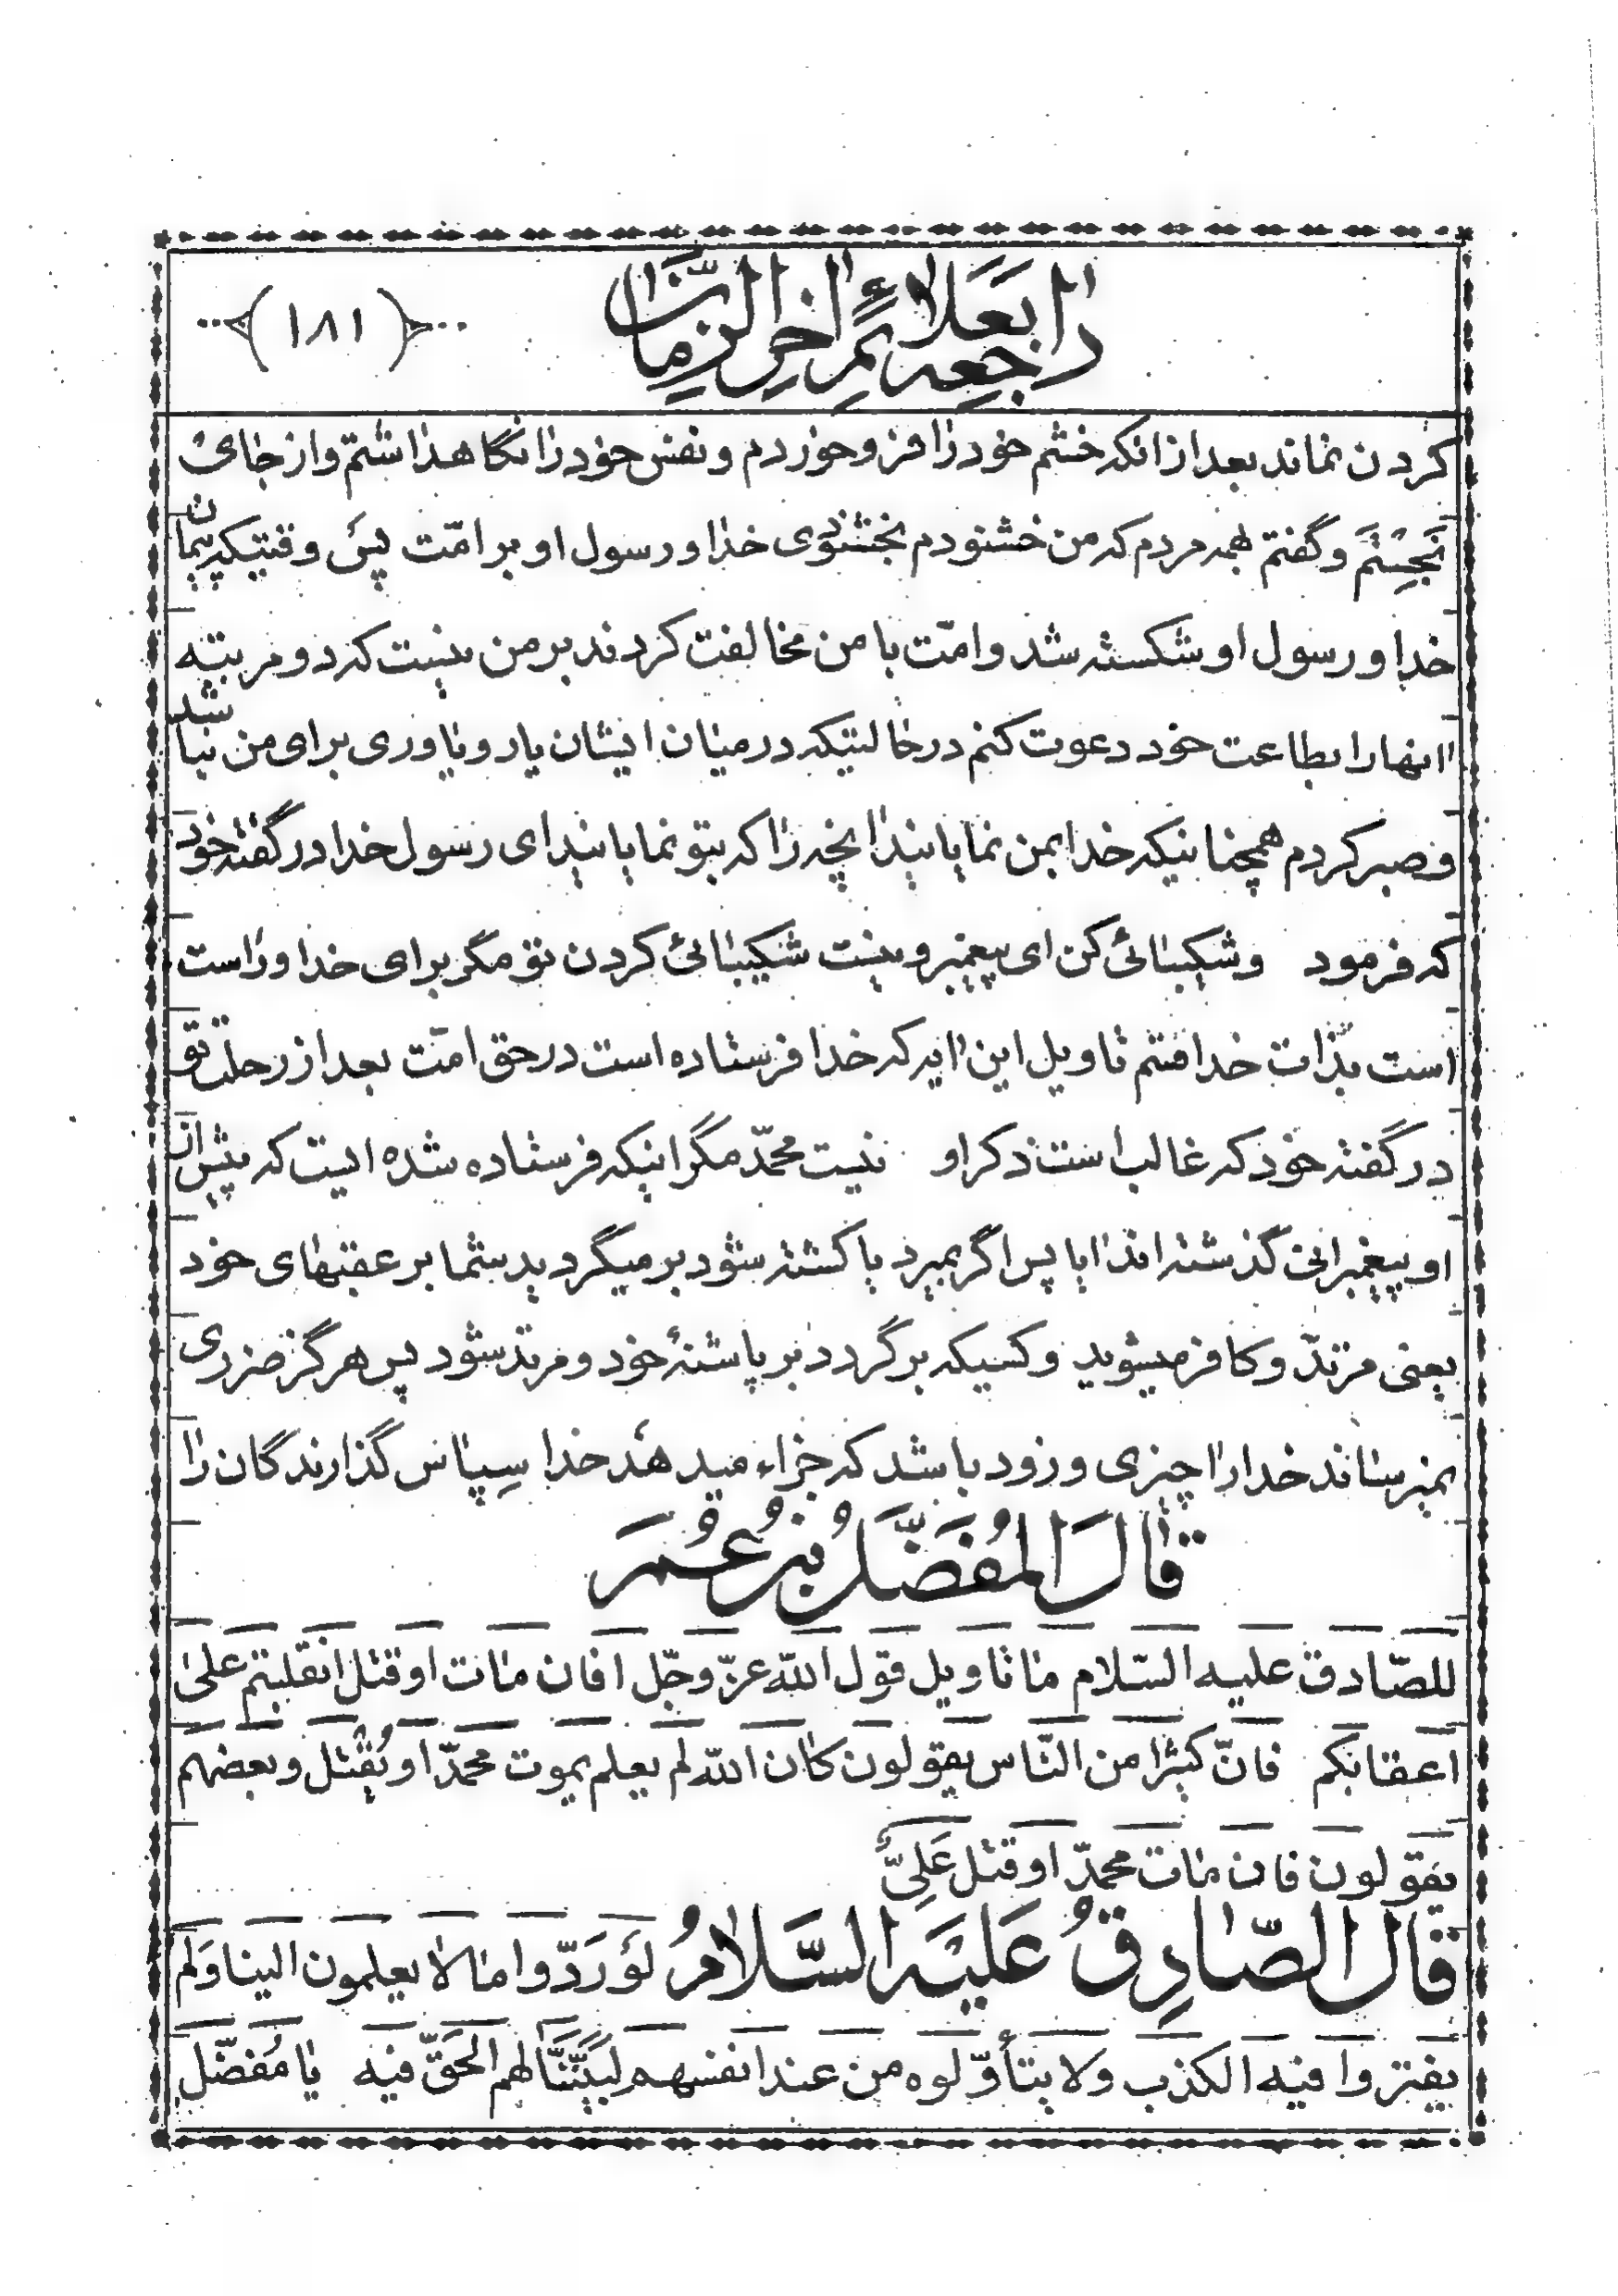 راجعه بعلائم اخر الزمان
(۱۸۱)
کردن نماند بعد از انکه خشم خود را فرو خوردم و نفس خود را نگاهداشتم و از جای
نجستم و گفتم بهمه مردم که من خشنودم بخشنودی خدا و رسول او بر امّت پس وقتیکه پیمان
خدا و رسول او شکسته شد و امّت با من مخالفت کردند بر من نیست که دو مرتبه
انها را بطاعت خود دعوت کنم در حالتیکه در میان ایشان یار و یاوری برای من نباشد
و صبر کردم همچنانیکه خدا بمن نمایانید انچه را که بتو نمایانید ای رسول خدا در گفته خود
که فرمود وشکیبائی کن ای پیغمبر و نیست شکیبائی کردن تو مگر برای خدا و راست
است بذات خدا قسم تاویل این ایه که خدا فرستاده است در حق امّت بعد از رحلت تو
در گفته خود که غالب است ذکر او نیست محمّد مگر اینکه فرستاده شده ایست که پیش از
او پیغمبرانی گذشته اند ایا پس اگر بمیرد یا کشته شود بر میگردید شما بر عقبهای خود
یعنی مرتدّ و کافر میشوید و کسیکه بر گردد بر پاشنهٔ خود و مرتد شود پس هرگز ضرری
نمیرساند خدا را چیزی و زود باشد که جزاء میدهد خدا سپاس گذارندگان را
قال المُفَضَّلُ بنُ عُمَر
للصّادق علیه السّلام ما تاویل قول الله عزّ وجّل افان مات او قتل انقلبتم علی
اعقابکم فانّ کثیرا من النّاس یقولون کان الله لم یعلم یموت محمّد او یُقْتل وبعضهم
یقولون فان مات محمدّ او قتل عَلِیٌّ
قال الصّادِقُ عَلَیْهِ السَّلامُ لَوْ رَدّوا ما لا یعلمون الینا وَلم
یفتروا فیه الکذب ولا یتأوّلوه من عند انفسهم لَبَیَّنَّا لهم الحَقّ فیه یا مُفضّل